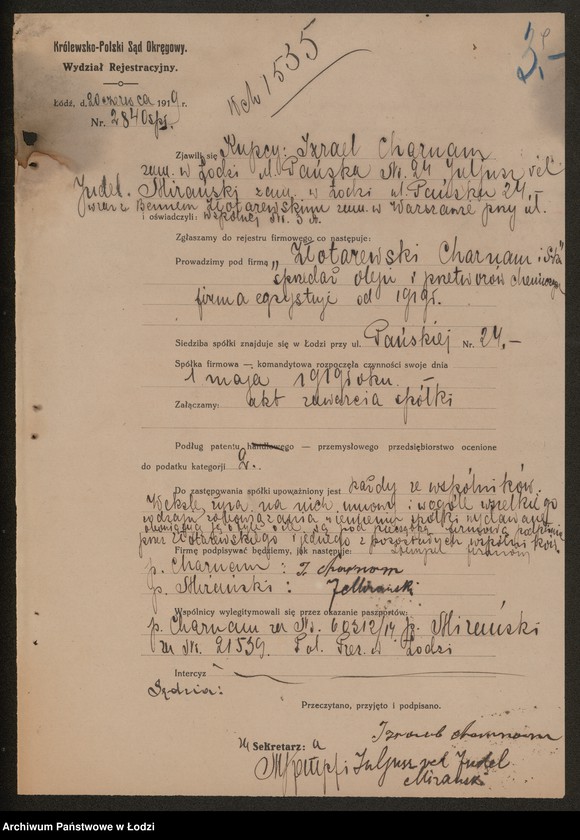 Królewsko-Polski Sąd Okręgowy.
Wydział Rejestracyjny.
Łódź, d. 20 czerwca 1919 r.
Nr. 2840 spł.
1535
3.-
Zjawili się Kupcy: Izrael Charnam
zam. w Łodzi ul. Pańska No. 24, Juljusz vel
Judel Mirański zam. w Łodzi ul. Pańska 24,-
wraz z Zlotarewskim zam. w Warszawie przy ul.
i oświadczyli: Wspólnej No.
Zgłaszamy do rejestru firmowego co następuje:
Prowadzimy pod firmą „Zlotarewski Charnam i S-ka"
sprzedaż oleju i przetworów chemicznych
firma egzystuje od 1919 r.
Siedziba spółki znajduje się w Łodzi przy ul. Pańskiej Nr. 24,-
Spółka firmowa — komandytowa rozpoczęła czynności swoje dnia
1 maja 1919 roku. —
Załączamy: akt zawarcia spółki
Podług patentu handlowego — przemysłowego przedsiębiorstwo ocenione
do podatku kategorji 2.
Do zastępowania spółki upoważniony jest każdy ze wspólników.
Weksle, na nich, umowy i wogóle wszelkiego
rodzaju zobowiązania imieniem spółki wydawane
pod pieczęcią firmową
przez Zlotarewskiego i jednego z pozostałych wspólników
Firmę podpisywać będziemy, jak następuje: stempel firmowy
p. Charnam: I. Charnam
p. Mirański: J. Mirański
Wspólnicy wylegitymowali się przez okazanie paszportów:
p. Charnam za No. 60312/17 p. Mirański
za No. 21539. Pol. Prez. w Łodzi
Intercyz
Sędzia:
Przeczytano, przyjęto i podpisano.
Sekretarz:
Juljusz vel Judel
Mirański
Archiwum Państwowe w Łodzi